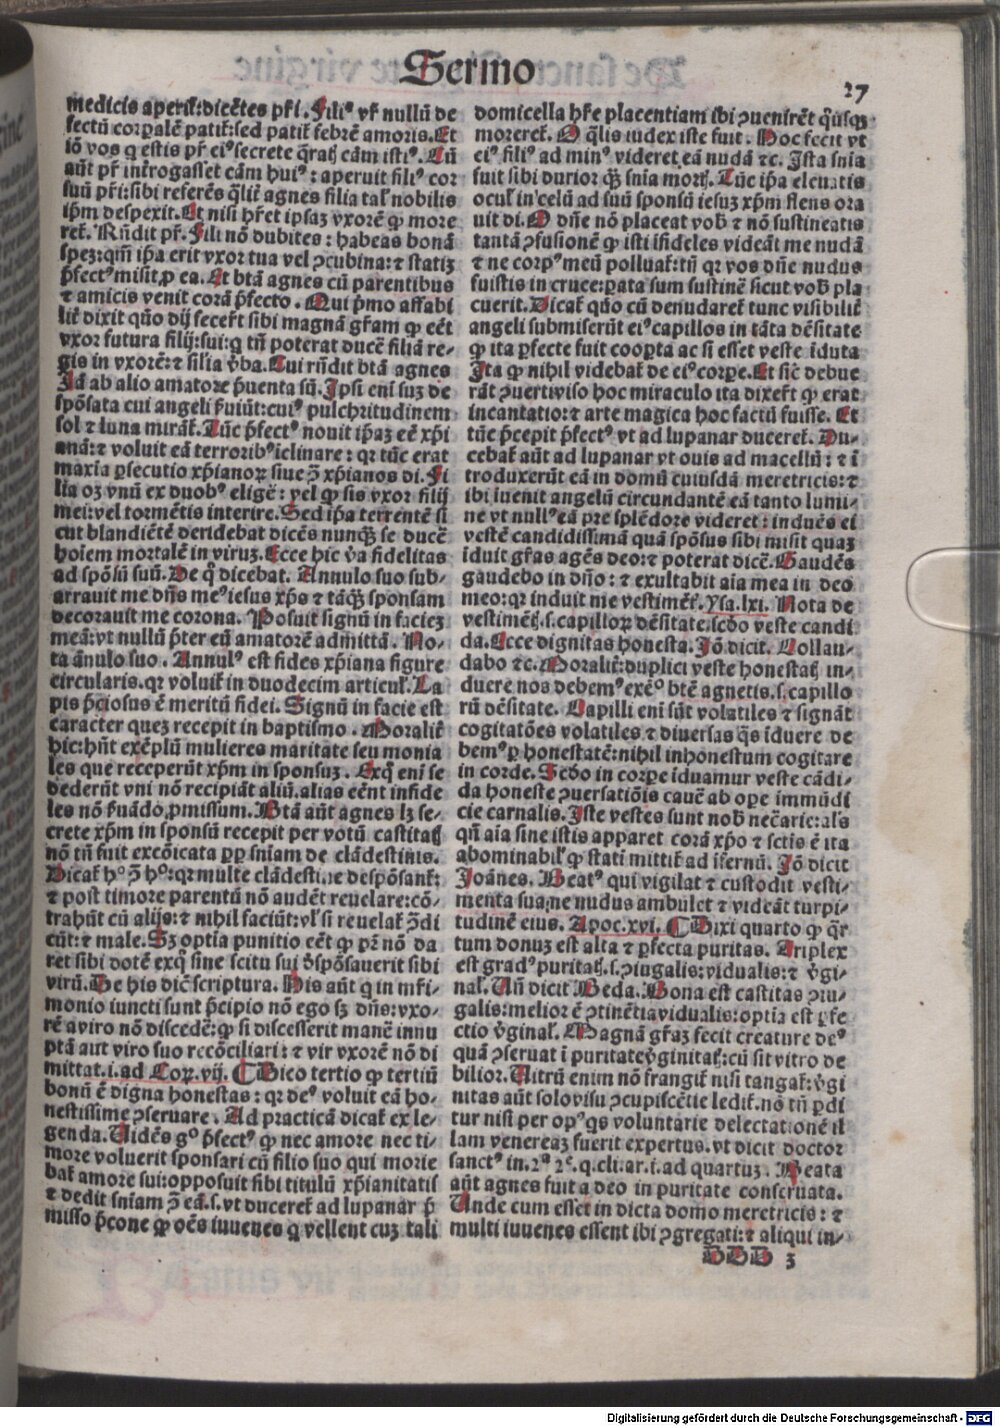 Sermo
27
medicis aperit̃:dicẽtes pr̃i. Filiꝰ vr̃ nullũ de
fectũ corꝑalẽ patit̃:sed patit̃ febrẽ amoris. Et
iõ vos q estis pr̃ eiꝰ secrete q̃rat̃ cãm istiꝰ. Cũ
aũt pr̃ int̃rogasset cãm huiꝰ: aperuit filiꝰ cor
suũ pr̃i:sibi referẽs q̃lit̃ agnes filia tal̃ nobilis
ip̃m despexit. Et nisi hr̃et ipsaz vxorẽ ꝙ more
ret̃. Rñdit pr̃. Fili nõ dubites: habeas bonã
spez:qm̃ ip̃a erit vxor tua vel ꝯcubina: ⁊ statiz
p̃fectꝰ misit ꝓ ea. Et btã agnes cũ parentibus
⁊ amicis venit corã p̃fecto. Qui p̃mo affabi
lit̃ dixit quõ dij fecer̃t sibi magnã gr̃am ꝙ eẽt
vxor futura filij:sui:q tñ poterat ducẽ filiã re-
gis in vxorẽ:⁊ sil̃ia v̓ba. Cui rñdit btã agnes
Iã ab alio amatore p̃uenta sũ. Ipsi eni suz de
spõsata cui angeli ẜuiũt:cuiꝰ pulchritudinem
sol ⁊ luna mirãt̃. Tũc p̃fectꝰ nouit ip̃az eẽ xp̃i
anã:⁊ voluit eã terroribꝰ iclinare: qr tũc erat
maxia ꝑsecutio xp̃ianoꝝ siue ꝯ̃ xp̃ianos di. Fi
lia oz vnũ ex duobꝰ eligẽ: vel ꝙ sis vxor filij
mei:vel tormẽtis interire. Sed ip̃a terrentẽ si
cut blandiẽtẽ deridebat dicẽs nunq̃ se ducẽ
hoiem mortalẽ in viruz. Ecce hic v̓a fidelitas
ad spõsũ suũ. De q̃ dicebat. Annulo suo sub-
arrauit me dñs meꝰ iesus xp̃s ⁊ tãq̃ sponsam
decorauit me corona. Posuit signũ in faciez
meã:vt nullũ p̃ter eũ amatorẽ admittã. No-
ta ãnulo suo. Annulꝰ est fides xp̃iana figure
circularis. qr voluit̃ in duodecim articul̃. La
pis p̃ciosus ẽ meritũ fidei. Signũ in facie est
caracter quez recepit in baptismo. Moralit̃
hic:hñt exẽplũ mulieres maritate seu monia
les que receperũt xp̃m in sponsuz. Exq̃ eni se
dederũt vni nõ recipiãt aliũ. alias eẽnt infide
les nõ ẜuãdo ꝓmissum. Btã aũt agnes lz se-
crete xp̃m in sponsũ recepit per votũ castitatꝭ
nõ tñ fuit excõicata ꝓp̃ sñiam de clãdestinis.
Dicat̃ hᵒ ꝯ̃ hᵒ:qr multe clãdestine despõsant̃:
⁊ post timore parentũ nõ audẽt reuelare:cõ-
trahũt cũ alijs:⁊ nihil faciũt:vl̃ si reuelat̃ ꝯ̃di
cũt:⁊ male. Sz optĩa punitio eẽt ꝙ pr̃ nõ da
ret sibi dotẽ exq̃ sine scitu sui v̓spõsauerit sibi
virũ. De his dic̃ scriptura. His aũt q in mr̃i-
monio iuncti sunt p̃cipio nõ ego sz dñs:vxo-
rẽ a viro nõ discedẽ:ꝙ si discesserit manẽ innu
ptã aut viro suo recõciliari:⁊ vir vxorẽ nõ di
mittat.i.ad Coꝝ.vij. ¶ Dico tertio ꝙ tertiũ
bonũ ẽ digna honestas: qr deꝰ voluit eã ho-
nestissime ꝯseruare. Ad practicã dicat̃ ex le-
genda. Uidẽs gᵒ p̃fectꝰ ꝙ nec amore nec ti-
more voluerit sponsari cũ filio suo qui morie
bat̃ amore sui:opposuit sibi titulũ xp̃ianitatis
⁊ dedit sñiam ꝯ̃ eã.s.vt duceret̃ ad lupanar p̃
misso p̃cone ꝙ oẽs iuuenes q vellent cuz tali
domicella hr̃e placentiam ibi ꝯuenirẽt q̃usqꝫ
moreret̃. O q̃lis iudex iste fuit. Hoc fecit vt
eiꝰ filiꝰ ad minꝰ videret eã nudã ⁊c. Ista sñia
fuit sibi durior qꝫ sñia mortꝭ. Tũc ip̃a eleuatis
ocul̃ in celũ ad suũ sponsũ iesuz xp̃m flens ora
uit di. O dñe nõ placeat vob̃ ⁊ nõ sustineatis
tantã ꝯfusionẽ ꝙ isti ifideles videãt me nudã
⁊ ne corpꝰ meũ polluat̃:tñ qr vos dñe nudus
fuistis in cruce:ꝑata sum sustinẽ sicut vob̃ pla
cuerit. Dicat̃ quõ cũ denudaret̃ tunc visibilit̃
angeli submiserũt eiꝰ capillos in tãta dẽsitate
ꝙ ita ꝑfecte fuit cooꝑta ac si esset veste iduta
Ita ꝙ nihil videbat̃ de eiꝰ corpe. Et sic̃ debue
rãt ꝯuerti viso hoc miraculo ita dixer̃t ꝙ erat
incantatio:⁊ arte magica hoc factũ fuisse. Et
tũc p̃cepit p̃fectꝰ vt ad lupanar duceret̃. Du-
cebat̃ aũt ad lupanar vt ouis ad macellũ: ⁊ i
troduxerũt eã in domũ cuiusdã meretricis:⁊
ibi iuenit angelũ circundantẽ eã tanto lumi-
ne vt nullꝰ eã pre splẽdore videret: induẽs ei
vestẽ candidissimã quã spõsus sibi misit quaz
iduit gr̃as agẽs deo:⁊ poterat dicẽ. Gaudẽs
gaudebo in dño: ⁊ exultabit aĩa mea in deo
meo:qr induit me vestimẽt̃. Ysa.lxi. Nota de
vestimẽtꝭ.s.capilloꝝ dẽsitate.scõo veste candi
da. Ecce dignitas honesta. Iõ dicit. Collau-
dabo ⁊c. Moralit̃:duplici veste honestatꝭ in-
ducere nos debemꝰ exẽᵒ btẽ agnetis.s.capillo
rũ dẽsitate. Capilli eni sũt volatiles ⁊ signãt
cogitatões volatiles ⁊ diuersas q̃s iduere de
bemꝰ ꝑ honestatẽ:nihil inhonestum cogitare
in corde. Scõo in corpe iduamur veste cãdi-
da honeste ꝯuersatiõis cauẽ ab ope immũdi
cie carnalis. Iste vestes sunt nob̃ nec̃arie:al̃s
qñ aĩa sine istis apparet corã xp̃o ⁊ sctis ẽ ita
abominabil̃ ꝙ stati mittit̃ ad ifernũ. Iõ dicit
Ioãnes. Beatꝰ qui vigilat ⁊ custodit vesti-
menta sua:ne nudus ambulet ⁊ videãt turpi-
tudinẽ eius. Apoc.xvi. ¶ Dixi quarto ꝙ q̃r
tum donuz est alta ⁊ ꝑfecta puritas. Triplex
est gradꝰ puritatꝭ.s.ꝯiugalis:vidualis:⁊ v̓gi-
nal̃. Uñ dicit Beda. Bona est castitas ꝯiu-
galis:melior ẽ ꝯtinẽtia vidualis:optĩa est ꝑfe
ctio v̓ginal̃. Magnã gr̃az fecit creature deꝰ
quã ꝯseruat i puritate v̓ginitatꝭ:cũ sit vitro de
bilior. Uitrũ enim nõ frangit̃ nisi tangat̃:v̓gi
nitas aũt solo visu ⁊ ꝯcupiscẽtie ledit̃. nõ tñ ꝑdi
tur nisi per opꝰ qs voluntarie delectationẽ il
lam venereaz fuerit expertus. vt dicit doctor
sanctꝰ in.2ª 2ᵉ.q.cli:ar.i.ad quartuz. Beata
aũt agnes fuit a deo in puritate conseruata.
Unde cum esset in dicta domo meretricis: ⁊
multi iuuenes essent ibi ꝯgregati:⁊ aliqui in-
DDD 3
Digitalisierung gefördert durch die Deutsche Forschungsgemeinschaft - DFG